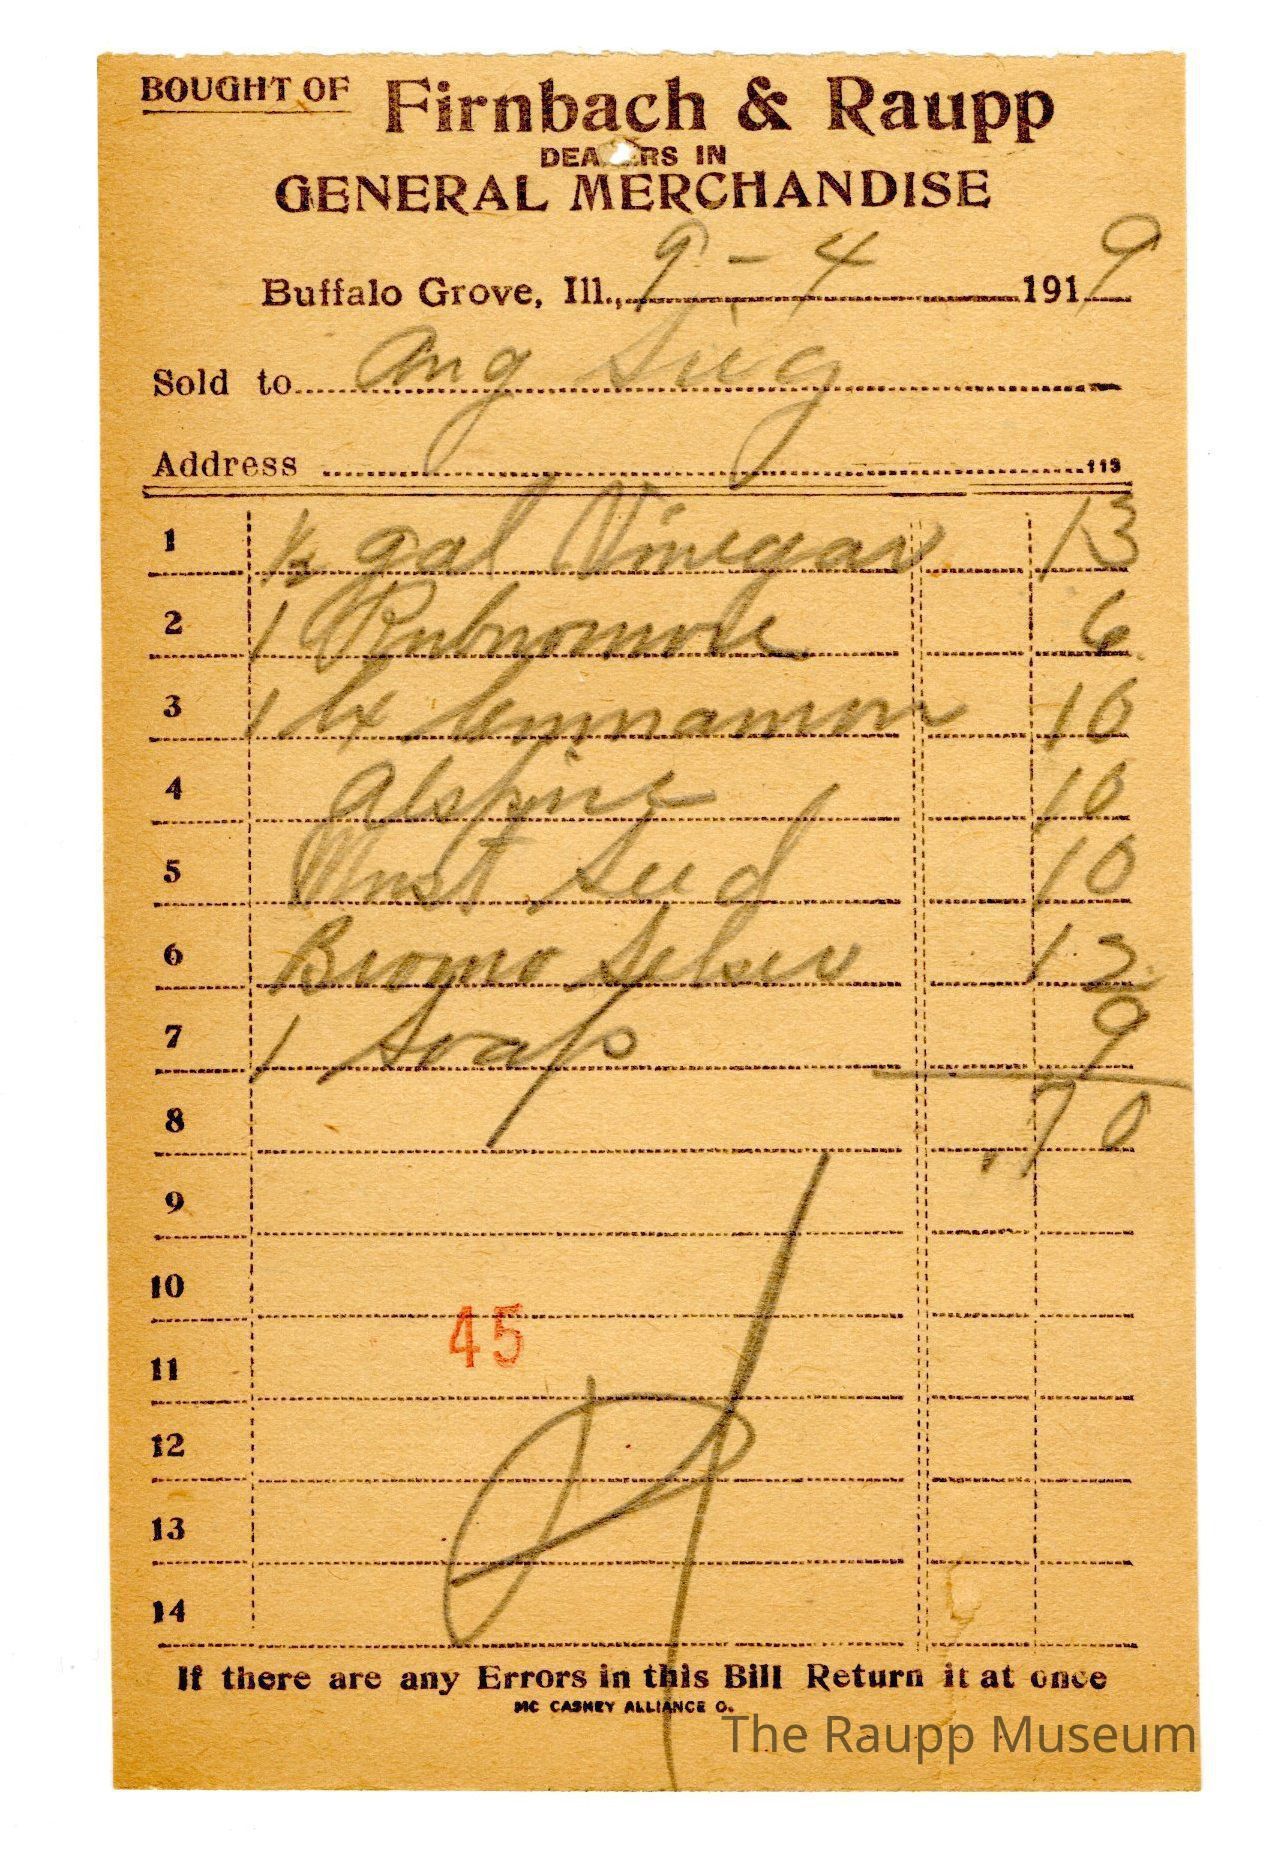 BOUGHT OF Firnbach & Raupp
DEA RS IN
GENERAL MERCHANDISE
Buffalo Grove, Ill., 9-4 1919
Sold to Aug Sieg
Address 113
1 ½ gal Vinegar 13
2 1 Rubnomore 6
3 1 bx Cinnamon 10
4 Alspice 10
5 Must Seed 10
6 Bromo Selser 12
7 1 Soap 9
8 .70
9
10
45
11
12
13
14
If there are any Errors in this Bill Return it at once
MC CASKEY ALLIANCE O.
The Raupp Museum